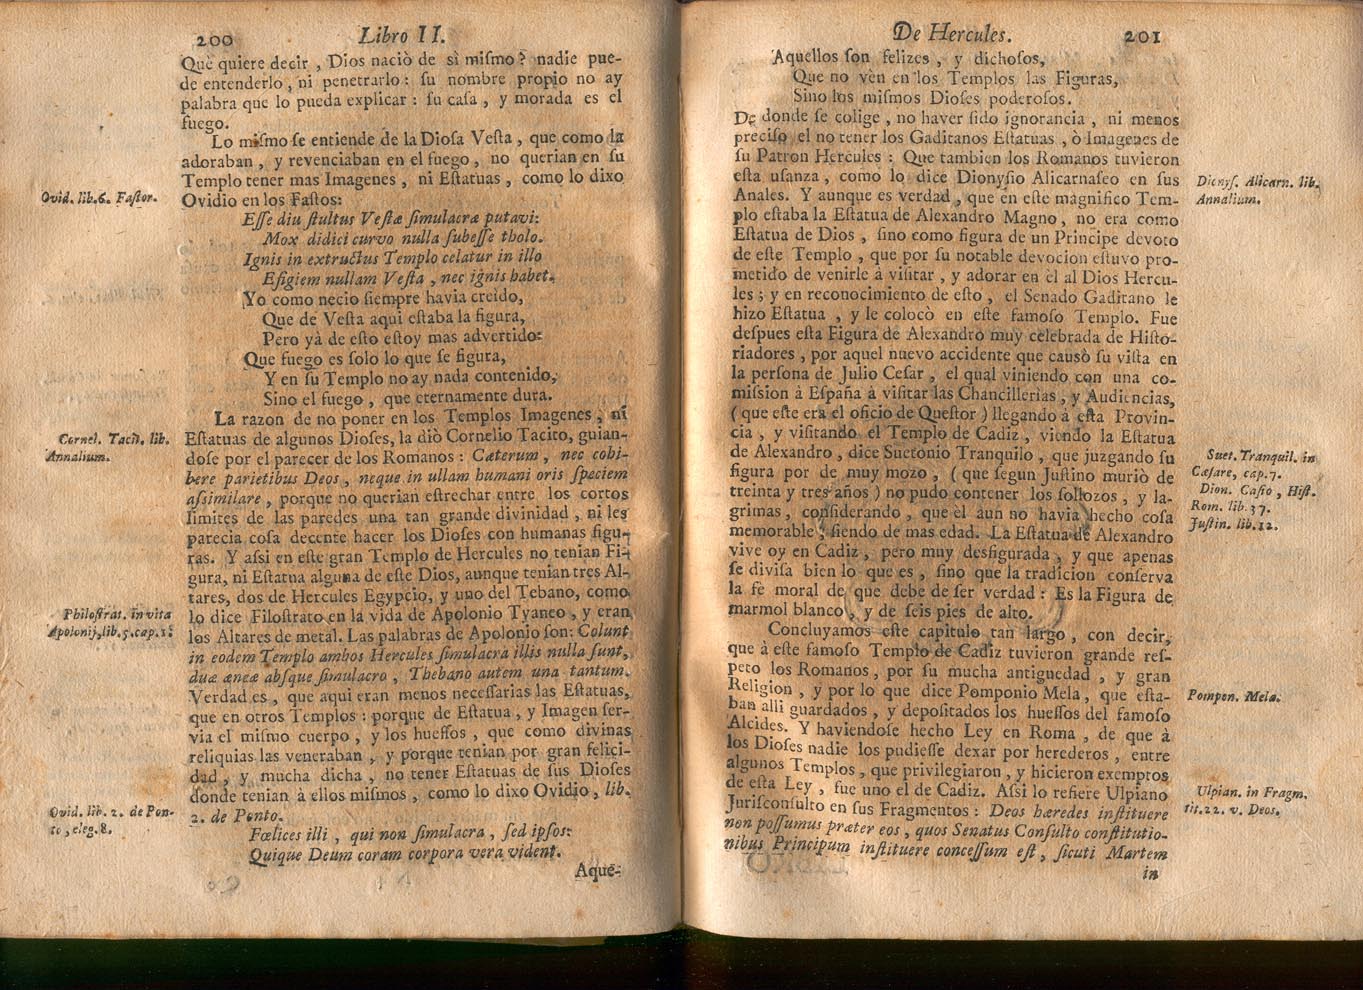 200 Libro II.
Què quiere decir , Dios naciò de sì miſmo? nadie pue-
de entenderlo , ni penetrarlo : ſu nombre propio no ay
palabra que lo pueda explicar : ſu caſa , y morada es el
fuego.
Lo miſmo ſe entiende de la Dioſa Veſta , que como la
adoraban , y revenciaban en el fuego , no querian en ſu
Templo tener mas Imagenes , ni Eſtatuas , como lo dixo
Ovid. lib. 6. Faſtor.
Ovidio en los Faſtos:
Eſſe diu ſtultus Veſtæ ſimulacra putavi:
Mox didici curvo nulla ſubeſſe tholo.
Ignis in extructus Templo celatur in illo
Efigiem nullam Veſta , nec ignis habet.
Yo como necio ſiempre havia creido,
Que de Veſta aqui eſtaba la figura,
Pero yà de eſto eſtoy mas advertido:
Que fuego es ſolo lo que ſe figura,
Y en ſu Templo no ay nada contenido,
Sino el fuego , que eternamente dura.
La razon de no poner en los Templos Imagenes , ni
Cornel. Tacit. lib.
Annalium.
Eſtatuas de algunos Dioſes, la diò Cornelio Tacito, guian-
doſe por el parecer de los Romanos : Cæterum , nec cohi-
bere parietibus Deos , neque in ullam humani oris ſpeciem
aſsimilare , porque no querian eſtrechar entre los cortos
limites de las paredes una tan grande divinidad , ni les
parecia coſa decente hacer los Dioſes con humanas figu-
ras. Y aſsi en eſte gran Templo de Hercules no tenian Fi-
gura, ni Eſtatua alguna de eſte Dios, aunque tenian tres Al-
tares, dos de Hercules Egypcio, y uno del Tebano, como
Philoſtrat. in vita
Apolonij, lib. 5. cap.
lo dice Filoſtrato en la vida de Apolonio Tyaneo , y eran
los Altares de metal. Las palabras de Apolonio ſon: Colunt
in eodem Templo ambos Hercules ſimulacra illis nulla ſunt,
duæ æneæ abſque ſimulacro , Thebano autem una tantum.
Verdad es , que aqui eran menos neceſſarias las Eſtatuas,
que en otros Templos : porque de Eſtatua , y Imagen ſer-
via el miſmo cuerpo , y los hueſſos , que como divinas
reliquias las veneraban , y porque tenian por gran felici-
dad , y mucha dicha , no tener Eſtatuas de ſus Dioſes
donde tenian à ellos miſmos , como lo dixo Ovidio , lib.
Ovid. lib. 2. de Pon-
to , eleg. 8.
2. de Ponto.
Fœlices illi , qui non ſimulacra , ſed ipſos:
Quique Deum coram corpora vera vident.
Aque-
De Hercules. 201
Aquellos ſon felizes , y dichoſos,
Que no vèn en los Templos las Figuras,
Sino los miſmos Dioſes poderoſos.
De donde ſe colige , no haver ſido ignorancia , ni menos
preciſo el no tener los Gaditanos Eſtatuas , ò Imagenes de
ſu Patron Hercules : Que tambien los Romanos tuvieron
eſta uſanza , como lo dice Dionyſio Alicarnaſeo en ſus
Dionyſ. Alicarn. lib.
Annalium.
Anales. Y aunque es verdad , que en eſte magnifico Tem-
plo eſtaba la Eſtatua de Alexandro Magno, no era como
Eſtatua de Dios , ſino como figura de un Principe devoto
de eſte Templo , que por ſu notable devocion eſtuvo pro-
metido de venirle à viſitar , y adorar en èl al Dios Hercu-
les ; y en reconocimiento de eſto , el Senado Gaditano le
hizo Eſtatua , y le colocò en eſte famoſo Templo. Fue
deſpues eſta Figura de Alexandro muy celebrada de Hiſto-
riadores , por aquel nuevo accidente que causò ſu viſta en
la perſona de Julio Ceſar , el qual viniendo con una co-
miſsion à Eſpaña à viſitar las Chancillerias , y Audiencias,
( que eſte era el oficio de Queſtor ) llegando à eſta Provin-
cia , y viſitando el Templo de Cadiz , viendo la Eſtatua
de Alexandro , dice Suetonio Tranquilo , que juzgando ſu
Suet. Tranquil. in
Cæſare, cap. 7.
Dion. Caſio , Hiſt.
Rom. lib. 37.
Juſtin. lib. 12.
figura por de muy mozo , ( que ſegun Juſtino muriò de
treinta y tres años ) no pudo contener los ſollozos , y la-
grimas , conſiderando , que èl aun no havia hecho coſa
memorable , ſiendo de mas edad. La Eſtatua de Alexandro
vive oy en Cadiz , pero muy desfigurada , y que apenas
ſe diviſa bien lo que es , ſino que la tradicion conſerva
la fè moral de que debe de ſer verdad : Es la Figura de
marmol blanco , y de ſeis pies de alto.
Concluyamos eſte capitulo tan largo , con decir,
que à eſte famoſo Templo de Cadiz tuvieron grande reſ-
peto los Romanos , por ſu mucha antiguedad , y gran
Religion , y por lo que dice Pomponio Mela , que eſta-
Pompon. Mela.
ban alli guardados , y depoſitados los hueſſos del famoſo
Alcides. Y haviendoſe hecho Ley en Roma , de que à
los Dioſes nadie los pudieſſe dexar por herederos , entre
algunos Templos , que privilegiaron , y hicieron exemptos
de eſta Ley , fue uno el de Cadiz. Aſsi lo refiere Ulpiano
Ulpian. in Fragm.
tit. 22. v. Deos.
Juriſconſulto en ſus Fragmentos : Deos hæredes inſtituere
non poſſumus præter eos , quos Senatus Conſulto conſtitutio-
nibus Principum inſtituere conceſſum eſt , ſicuti Martem
in